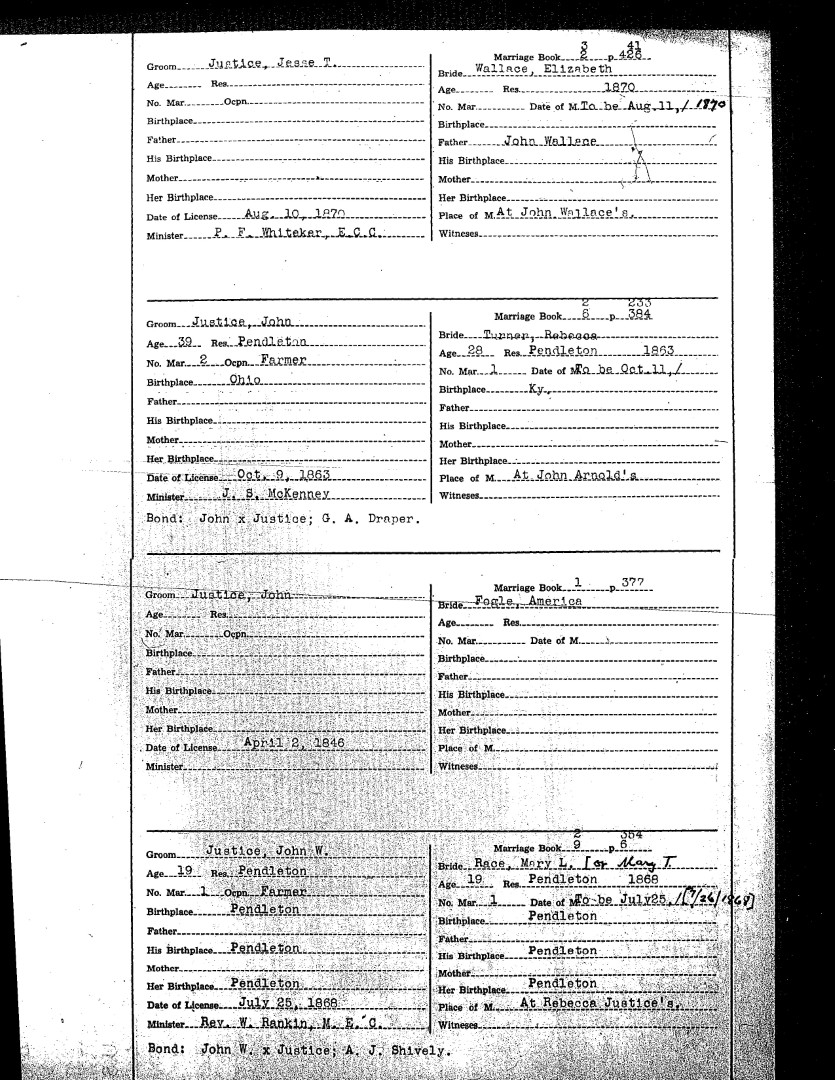 3 41
Groom Justice, Jesse T. Marriage Book 2 p. 428
Bride Wallace, Elizabeth
Age Res. Age Res. 1870
No. Mar. Ocpn. No. Mar. Date of M. To be Aug.11,/ 1870
Birthplace Birthplace
Father Father John Wallace
His Birthplace His Birthplace
Mother Mother
Her Birthplace Her Birthplace
Date of License Aug. 10, 1870 Place of M. At John Wallace's.
Minister P. F. Whiteker, E.C.C. Witnesses
2 233
Groom Justice, John Marriage Book 6 p. 384
Age 39 Res. Pendleton Bride Turner, Rebecca
No. Mar. 2 Ocpn. Farmer Age 28 Res. Pendleton 1863
Birthplace Ohio No. Mar. 1 Date of M. To be Oct.11,/
Father Birthplace Ky.
His Birthplace Father
Mother His Birthplace
Her Birthplace Mother
Date of License Oct. 9, 1863 Her Birthplace
Minister J. S. McKenney Place of M. At John Arnold's
Witnesses
Bond: John x Justice; G. A. Draper.
Groom Justice, John Marriage Book 1 p. 377
Bride Fogle, America
Age Res. Age Res.
No. Mar. Ocpn. No. Mar. Date of M.
Birthplace Birthplace
Father Father
His Birthplace His Birthplace
Mother Mother
Her Birthplace Her Birthplace
Date of License April 2, 1846 Place of M.
Minister Witnesses
2 354
Groom Justice, John W. Marriage Book 9 p. 6
Age 19 Res. Pendleton Bride Race, Mary L. [or Mary T.
No. Mar. 1 Ocpn. Farmer Age 19 Res. Pendleton 1868
Birthplace Pendleton No. Mar. 1 Date of M. To be July25,/[7/26/1868]
Father Birthplace Pendleton
His Birthplace Pendleton Father
Mother His Birthplace Pendleton
Her Birthplace Pendleton Mother
Date of License July 25, 1868 Her Birthplace Pendleton
Minister Rev. W. Rankin, M. E. C. Place of M. At Rebecca Justice's.
Witnesses
Bond: John W. x Justice; A. J. Shively.